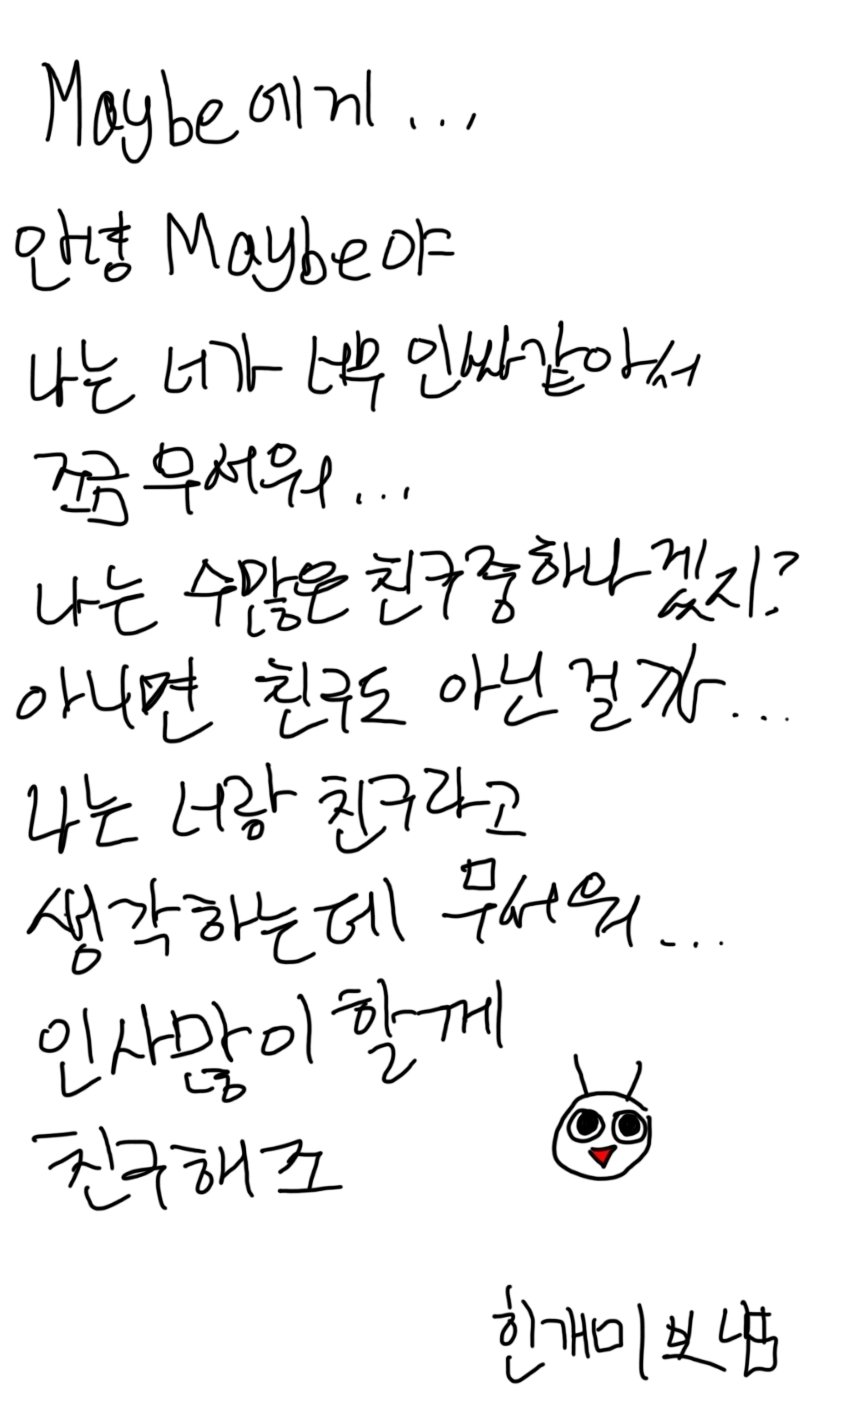 Maybe에게...
안녕 Maybe야
나는 너가 너무 인싸같아서
쪼끔 무서워...
나는 수많은 친구중하나겠지?
아니면 친구도 아닌걸까...
나는 너랑 친구라고
생각하는데 무서워...
인사많이할께
친구해조
힌개미보냄